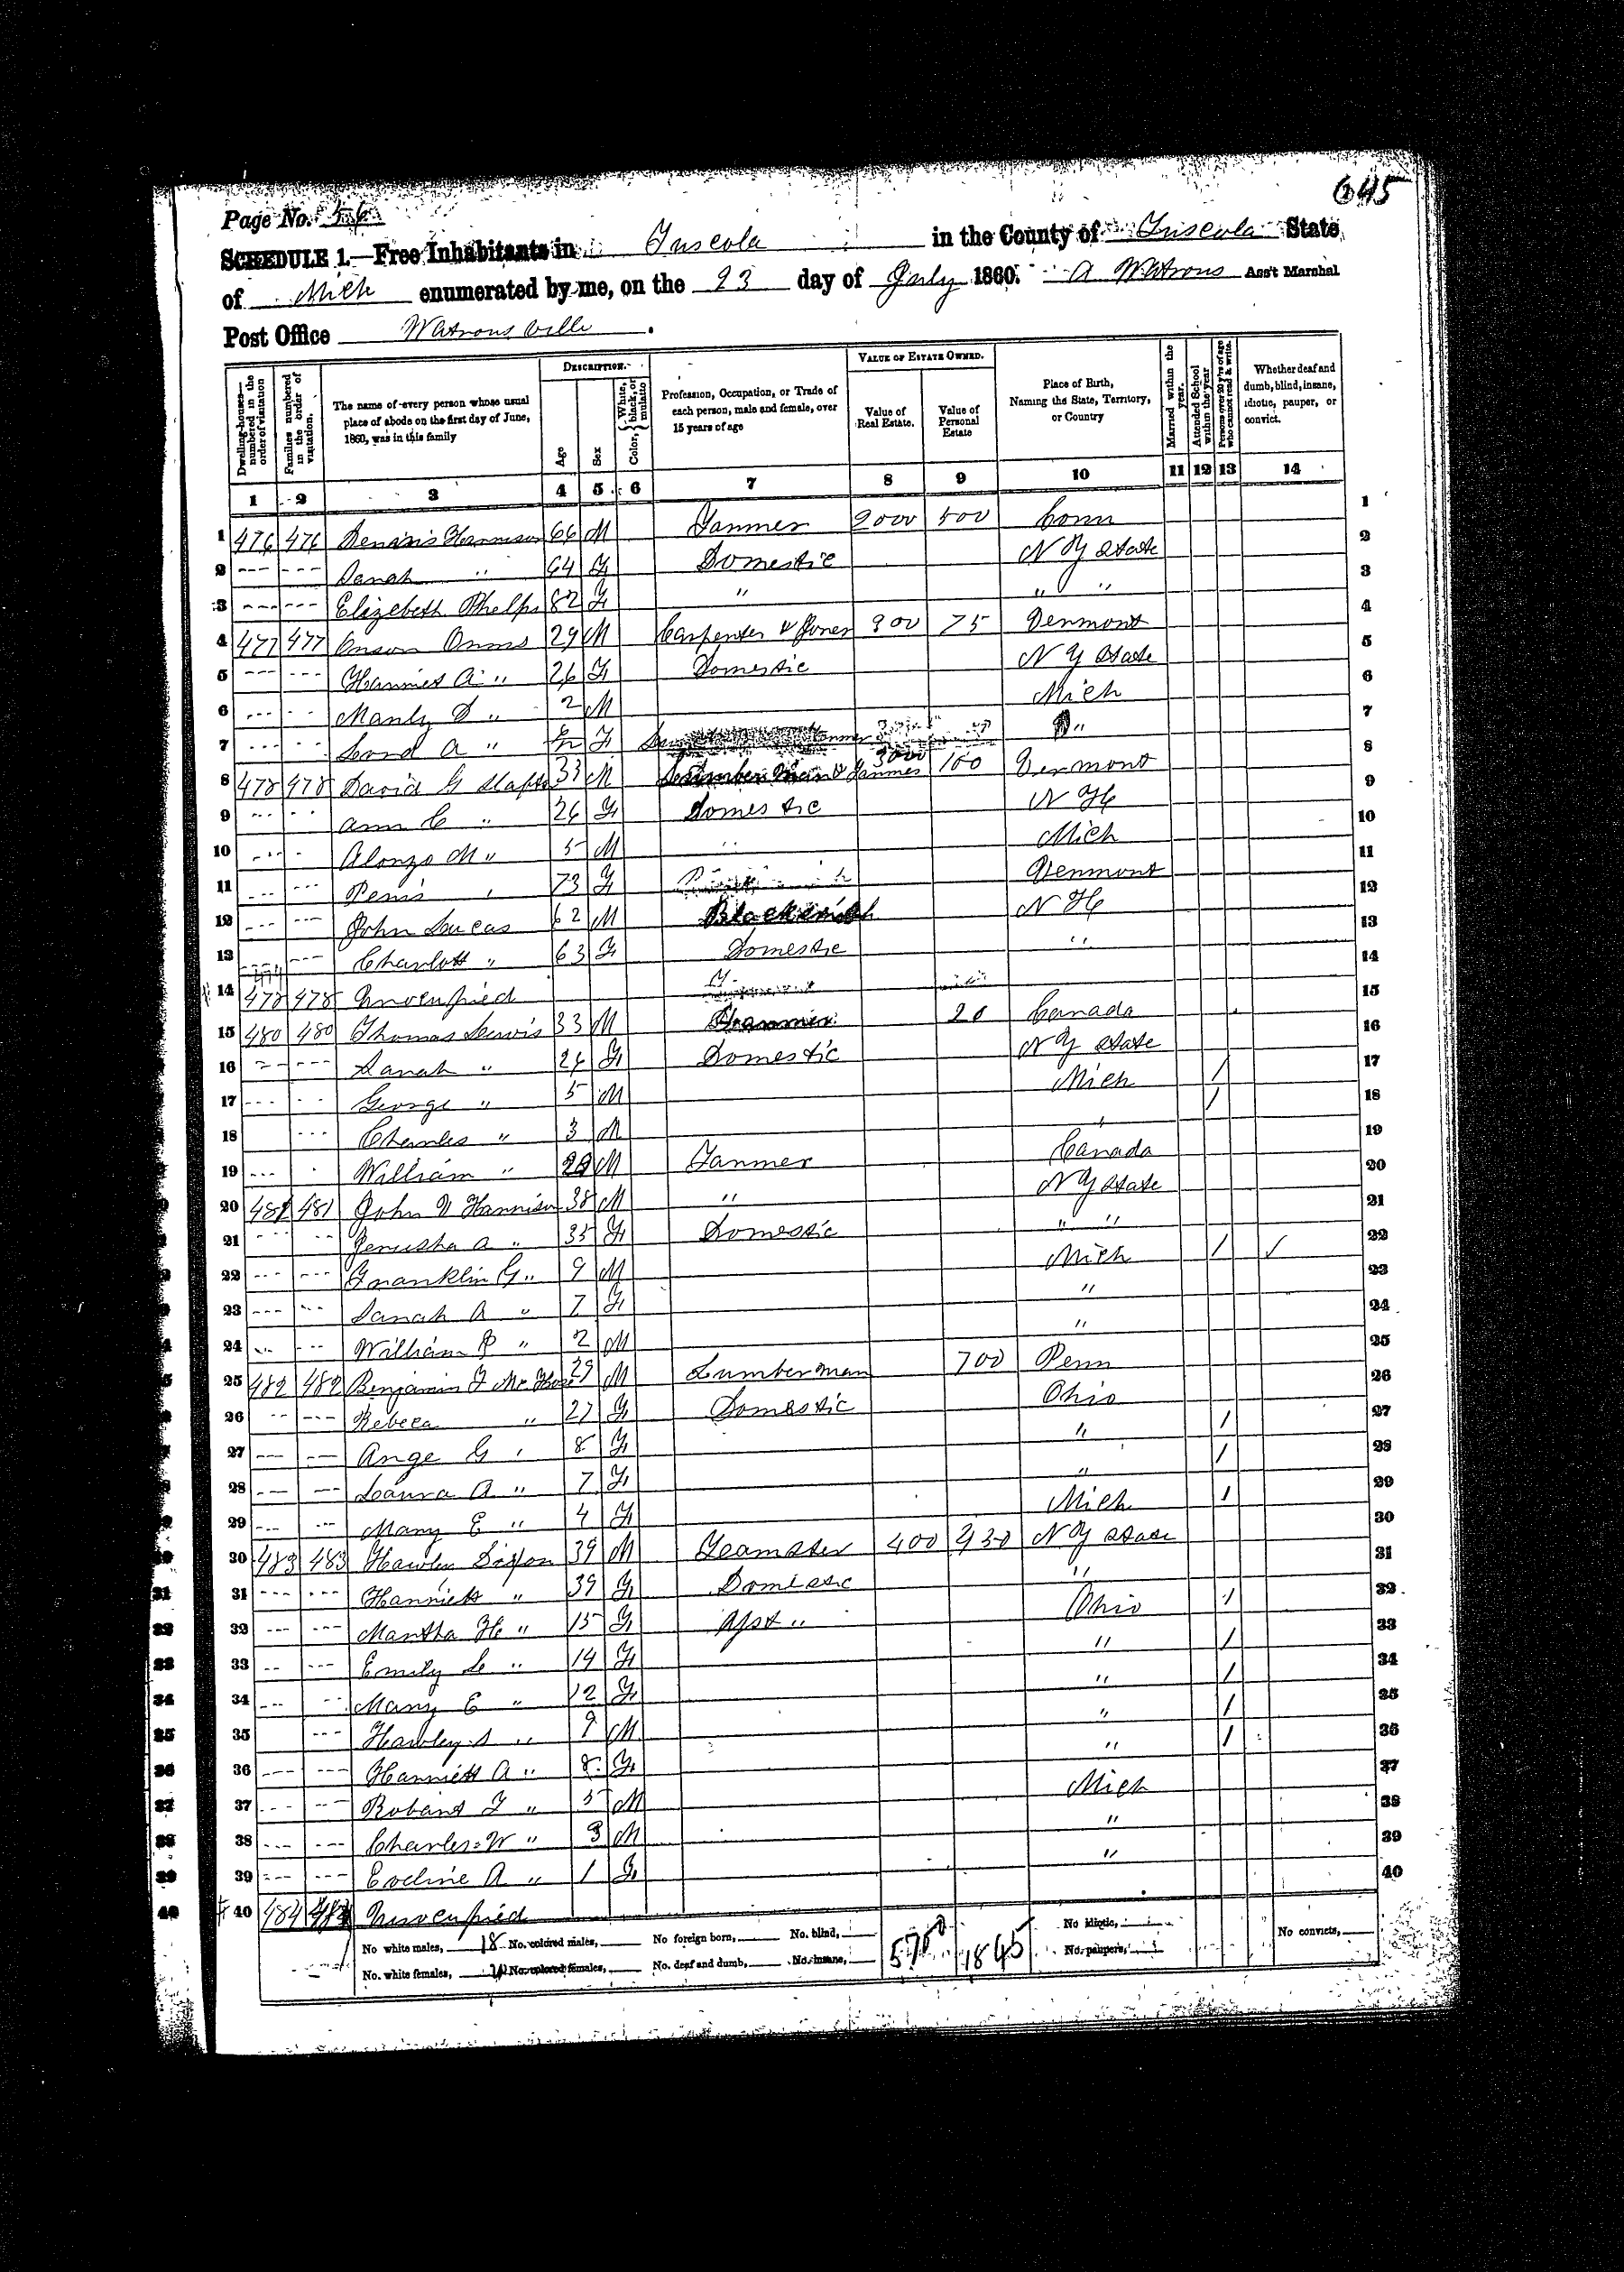 645
Page No. 56
SCHEDULE 1.—Free Inhabitants in Tuscola in the County of Tuscola State
of Mich enumerated by me, on the 23 day of July 1860. A Watrous Ass't Marshal
Post Office Watrousville.
DESCRIPTION. VALUE OF ESTATE OWNED.
Dwelling-houses— numbered in the order of visitation
Families numbered in the order of visitation.
The name of every person whose usual place of abode on the first day of June, 1860, was in this family
Age
Sex
Color, White, black, or mulatto
Profession, Occupation, or Trade of each person, male and female, over 15 years of age
Value of Real Estate.
Value of Personal Estate
Place of Birth, Naming the State, Territory, or Country
Married within the year.
Attended School within the year
Persons over 20 y'rs of age who cannot read & write.
Whether deaf and dumb, blind, insane, idiotic, pauper, or convict.
1 2 3 4 5 6 7 8 9 10 11 12 13 14
1 476 476 Dennis Harrison 66 M Farmer 2000 500 Conn 1
2 Sarah " 64 F Domestic N Y State 2
3 Elizebeth Phelps 82 F " " " 3
4 477 477 Orms 29 M Carpenter & Joner 75 Vermont 4
5 Harriet A " 26 F Domestic N Y State 5
6 Manly D " 2 M Mich 6
7 A " F " 7
8 478 478 David G Slafter 33 M Lumberman & Farmer 3000 100 Vermont 8
9 Ann C " 26 F Domestic N H 9
10 Alonzo M " 5 M " Mich 10
11 " 73 F Vermont 11
12 John Lucas 62 M Blacksmith N H 12
13 Charlott " 63 F Domestic " 13
14 478 478 Unocupied 14
15 480 480 Thomas 33 M Farmer 20 Canada 15
16 Sarah " 24 F Domestic N Y State 16
17 George " 5 M Mich / 17
18 Charles " 3 M " / 18
19 William " M Farmer Canada 19
20 481 481 John Harrison 38 M " N Y State 20
21 Jerusha A " 35 F Domestic " " 21
22 Franklin G " 9 M Mich / / 22
23 Sarah A " 7 F " 23
24 William P " 2 M " 24
25 482 482 Benjamin F M 700 Lumberman Penn 25
26 Rebeca " 27 F Domestic Ohio 26
27 Ange G " 8 F " / 27
28 Laura A " 7 F " / 28
29 Mary E " 4 F Mich / 29
30 483 483 Hawley Dixson 39 M Teamster 400 N Y State 30
31 Harriett " 39 F Domestic " 31
32 Martha H " 15 F " Ohio / 32
33 Emily L " 14 F " / 33
34 Mary E " 12 F " / 34
35 Hawley S " 9 M " / 35
36 Harriett A " 8 F " / 36
37 Robart F " 5 M Mich 37
38 Charles W " 3 M " 38
39 Eveline A " 1 F " 39
40 484 484 Unocupied 40
No white males, 18 No. colored males, No foreign born, No. blind, 5750 1845 No idiotic, No convicts,
No. white females, No. colored females, No. deaf and dumb, No. insane, No. paupers,